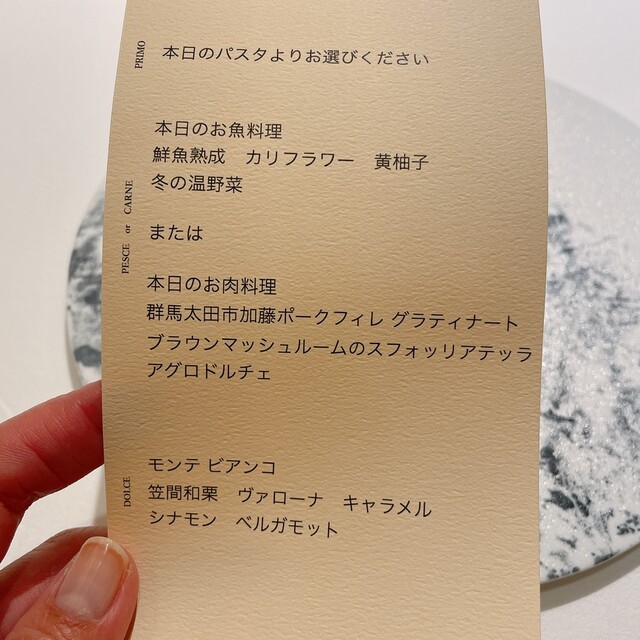 PRIMO
本日のパスタよりお選びください
PESCE or CARNE
本日のお魚料理
鮮魚熟成　カリフラワー　黄柚子
冬の温野菜
または
本日のお肉料理
群馬太田市加藤ポークフィレ グラティナート
ブラウンマッシュルームのスフォッリアテッラ
アグロドルチェ
DOLCE
モンテ ビアンコ
笠間和栗　ヴァローナ　キャラメル
シナモン　ベルガモット